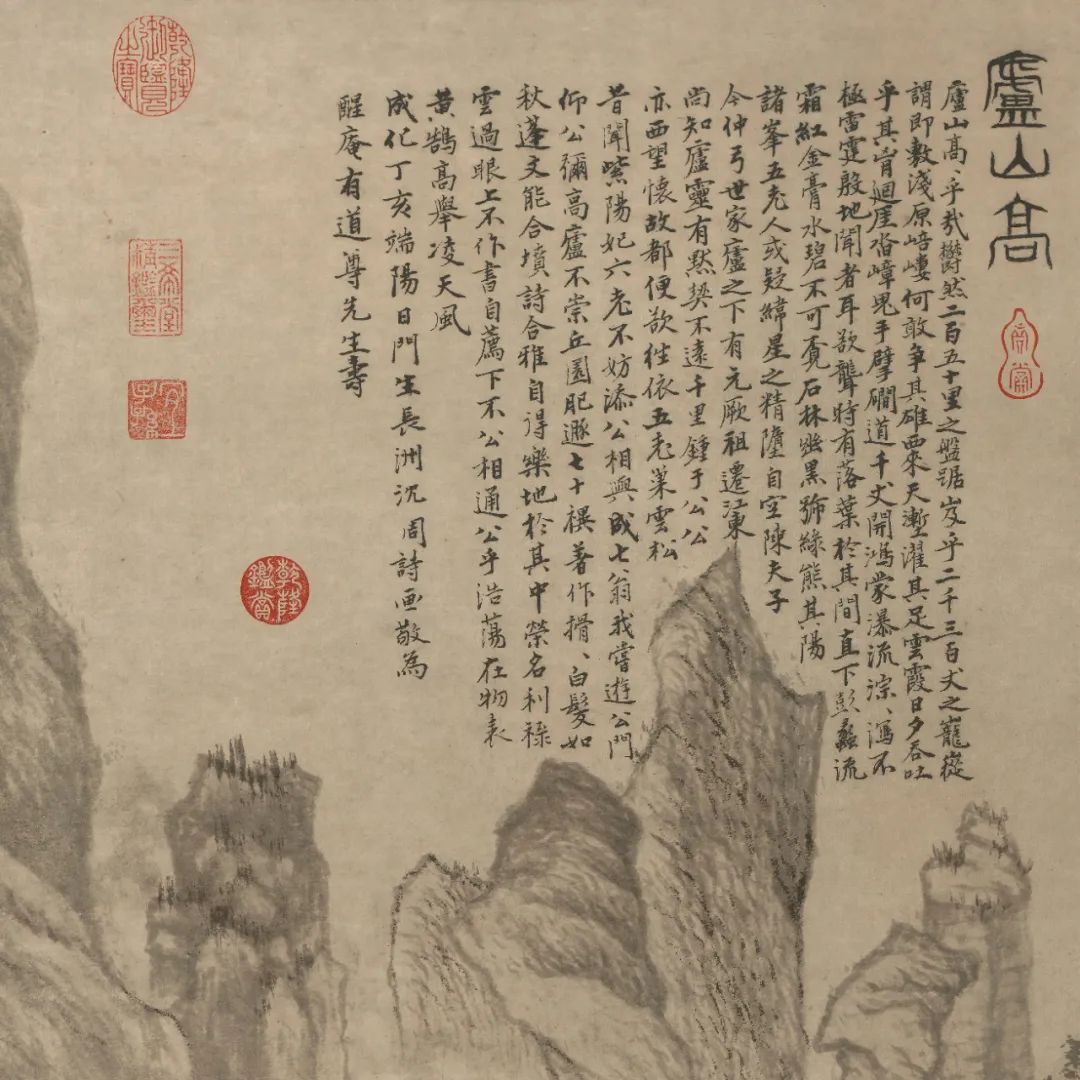 廬山高
廬山高、乎哉鬱然二百五十里之盤踞岌乎二千三百丈之巃嵷
謂即敷淺原㟝嶁何敢爭其雄西來天塹濯其足雲霞日夕吞吐
乎其胷迴崖沓嶂鬼手擘磵道千丈開鴻蒙瀑流淙、瀉不
極雷霆殷地聞者耳欲聾時有落葉於其間直下彭蠡流
霜紅金膏水碧不可覔石林幽黑號綠熊其陽
諸峯五老人或疑緯星之精墮自空陳夫子
今仲弓世家廬之下有元厥祖遷江東
尚知廬靈有默契不遠千里鍾于公公
亦西望懷故都便欲往依五老巢雲松
昔聞紫陽妃六老不妨添公相與成七翁我嘗遊公門
仰公彌高廬不崇丘園肥遯七十禩著作搰、白髮如
秋蓬文能合墳詩合雅自得樂地於其中榮名利祿
雲過眼上不作書自薦下不公相通公乎浩蕩在物表
黃鵠高舉凌天風
成化丁亥端陽日門生長洲沈周詩画敬為
醒庵有道尊先生壽
乾隆御覽之寶
三希堂精鑑璽
宜子孫
乾隆鑑賞